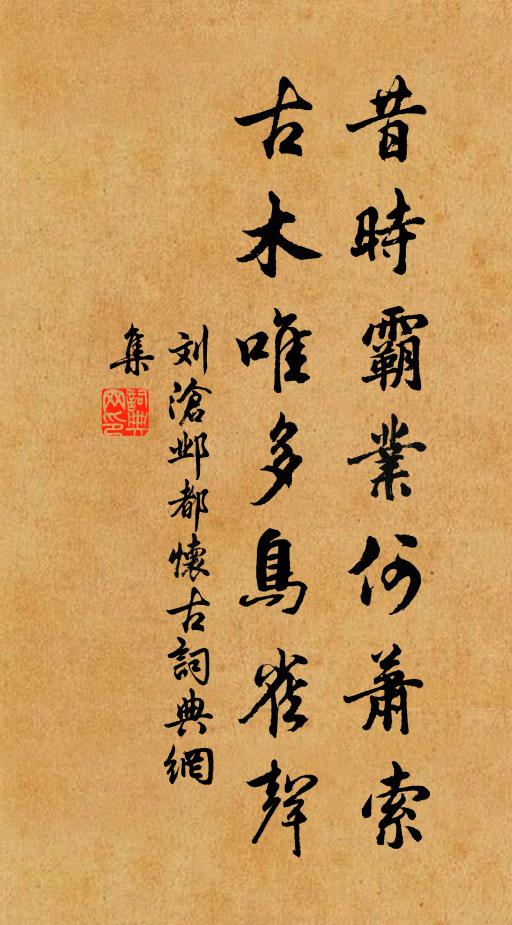 昔時霸業何蕭索
古木唯多鳥雀聲
刘滄邺都懷古詞典網
集
詞典
网印